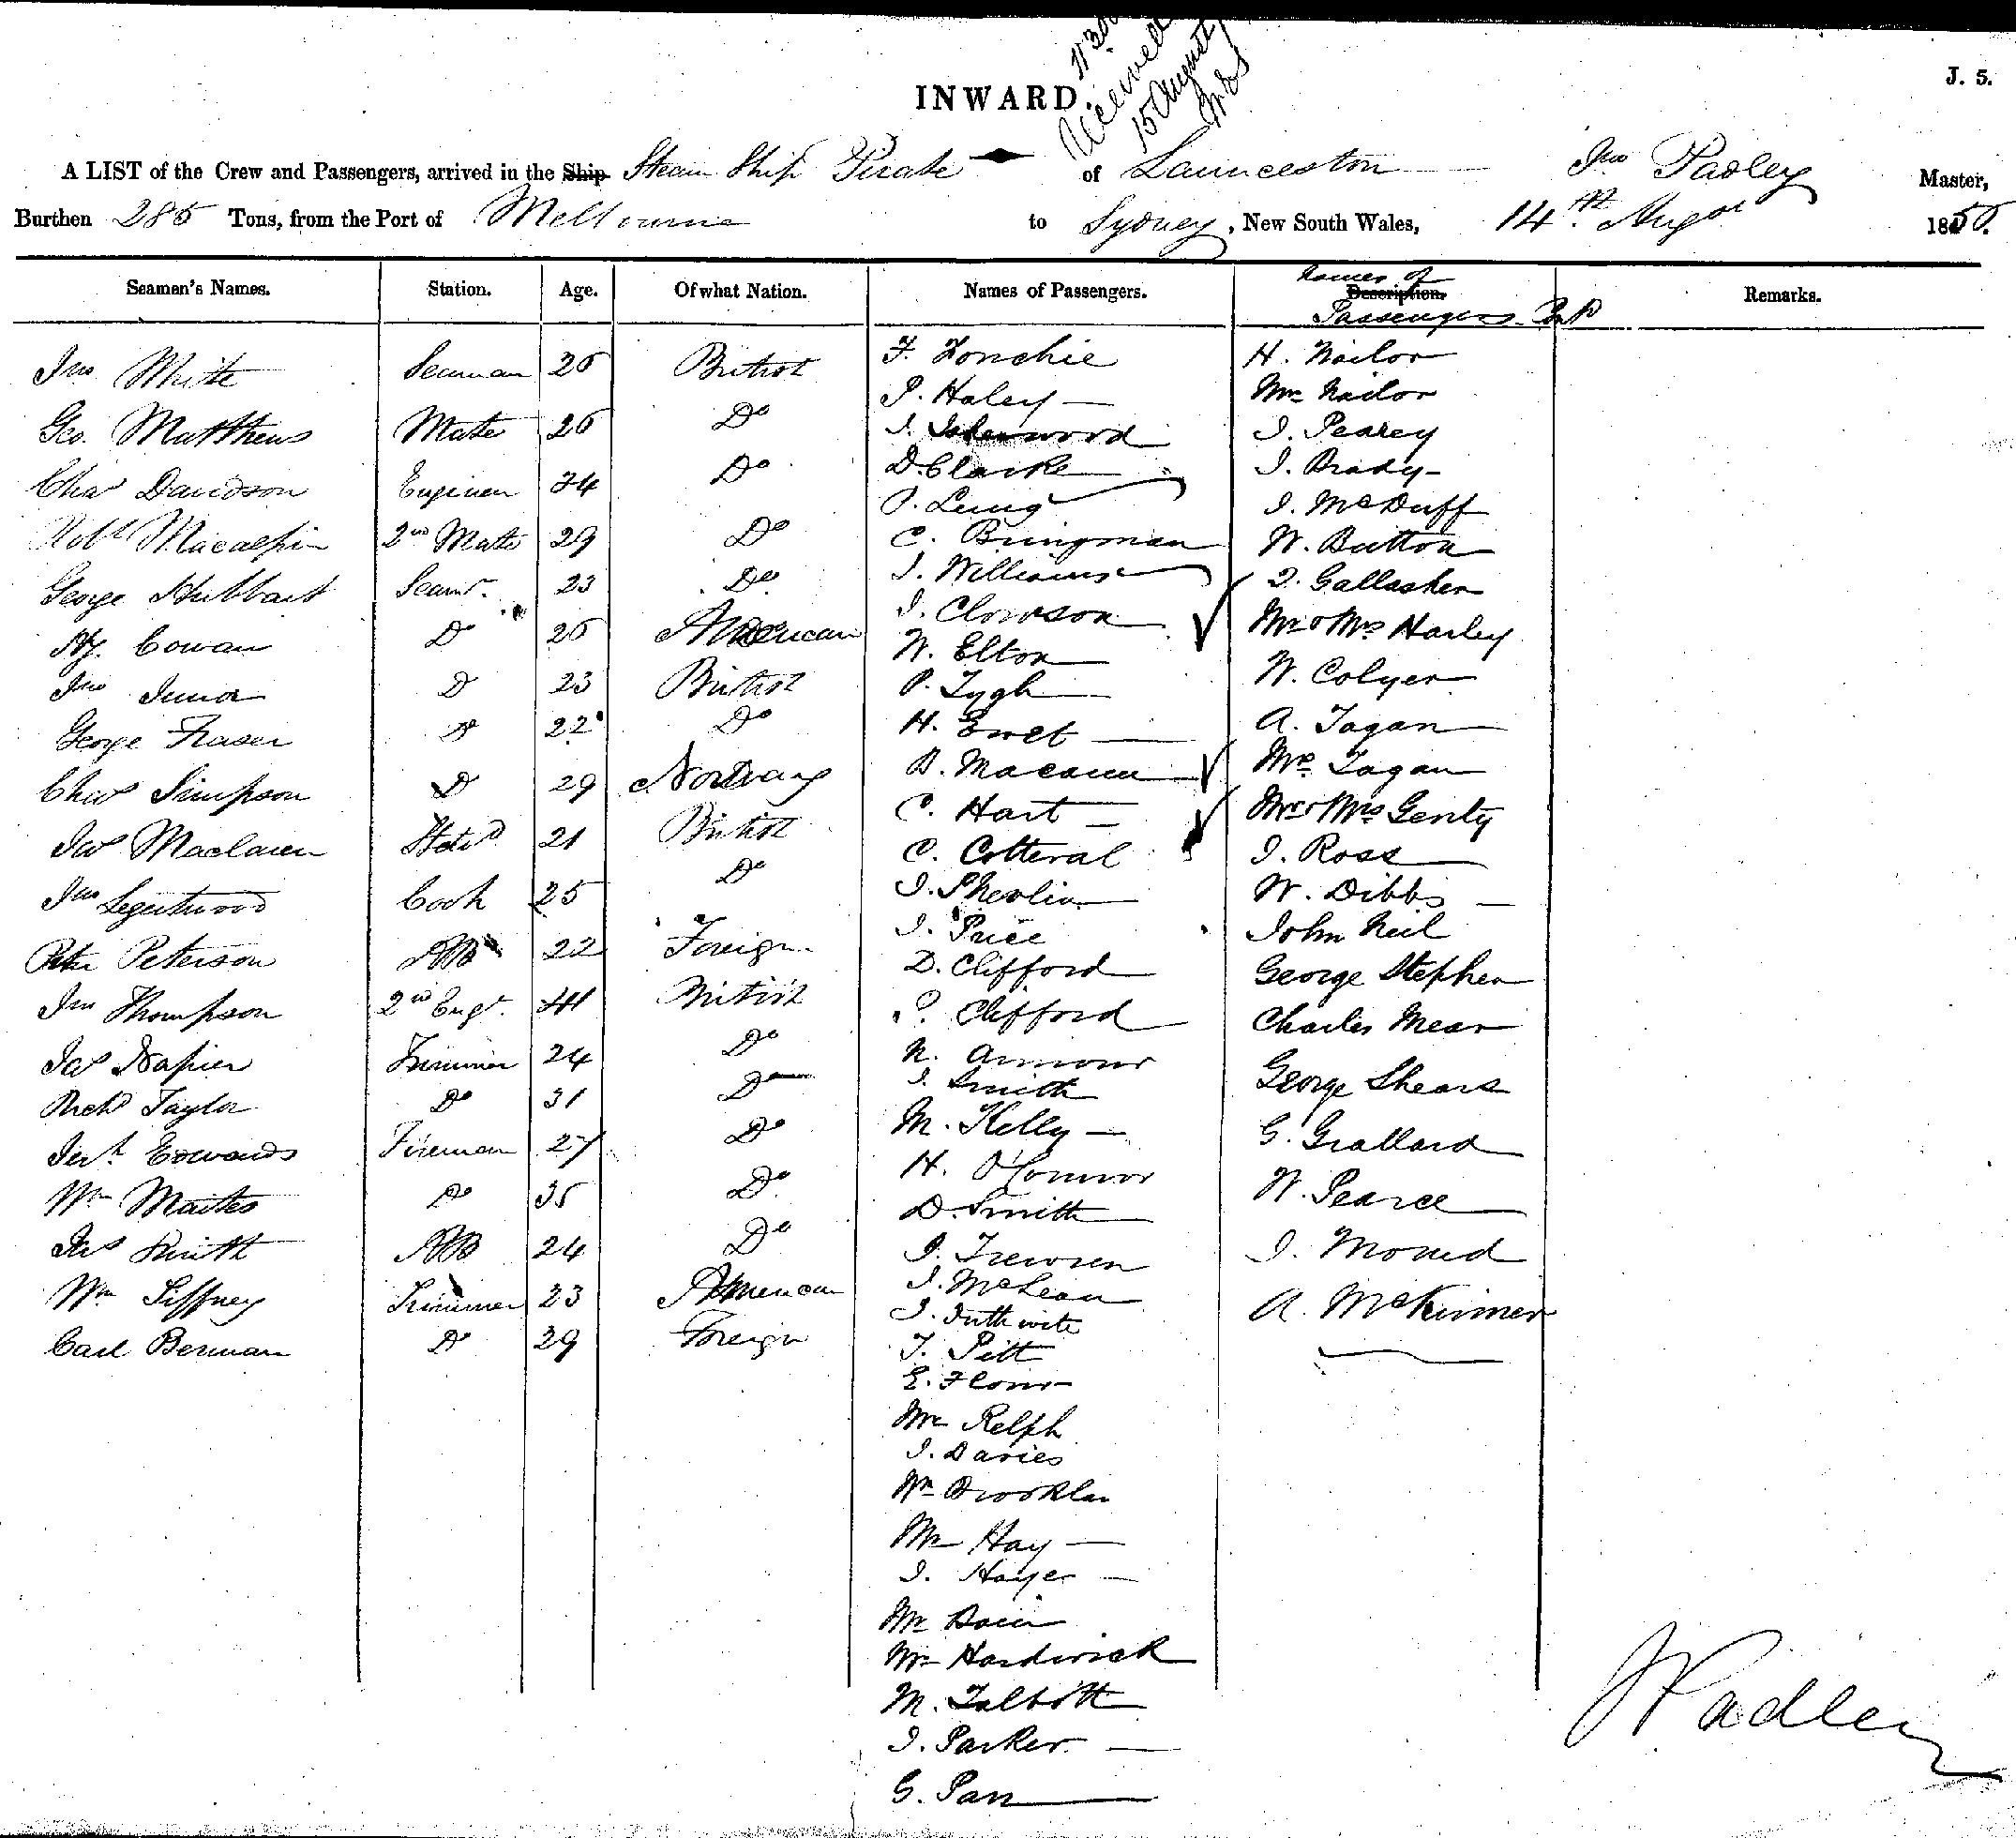 J. 5.
INWARD.
Received
15 August
A LIST of the Crew and Passengers, arrived in the Ship Steam Ship Pirate of Launceston Jno Padley Master,
Burthen 285 Tons, from the Port of Melbourne to Sydney, New South Wales, 14th Augst 1855.
Seaman's Names. Station. Age. Of what Nation. Names of Passengers. Description. Names of Passengers Contd Remarks.
Jno White Seaman 26 British
Geo. Matthews Mate 26 Do
Chas Davidson Engineer 34 Do
Robt Macalpin 2nd Mate 29 Do
George Hubbart Seamn. 23 Do
Hy. Cowan Do 26 American
Jno Do 23 British
George Fraser Do 22 Do
Chas Simpson Do 29 Norway
Jas Maclaren Stewd 21 British
Jno Cook 25 Do
Peter Peterson AB 22 Foreign
Jno Thompson 2nd Engr. British
Jas Napier Trimmer 24 Do
Richd Taylor Do 31 Do
Edwards Fireman 27 Do
Wm Do 35 Do
Jas Smith AB 24 Do
Wm Trimmer 23 American
Carl Berman Do 29 Foreign
F.
P. Haley
J. Isherwood
D. Clarke
P. Lung
C. Bringman
J. Williams
J. Clowson
W. Elton
P. Tygh
H. Ewet
B. Macann
C. Hart
C. Cotteral
J. Shevlin
J. Price
D. Clifford
P. Clifford
N. Armour
J. Smith
M. Kelly
H. O'Connor
D. Smith
J. Trewren
J. McLean
J.
T. Pitt
E. Flour
Mr Relph
J. Davies
Wm
Mr Hay
J. Hayes
Mr
Mr Hardwick
M. Talbott
J. Parker
G. Parr
H. Nailor
Mr Nailor
J. Pearcy
J. Brady
J. McDuff
W. Button
J. Gallasher
Mr & Mrs Harley
W. Colyer
A. Fagan
Mrs Fagan
Mr & Mrs Genty
J. Ross
W. Dibbs
John Neil
George Stephen
Charles Mear
George Shears
G. Grallard
W. Pearce
J.
A. McKinner
J Padley